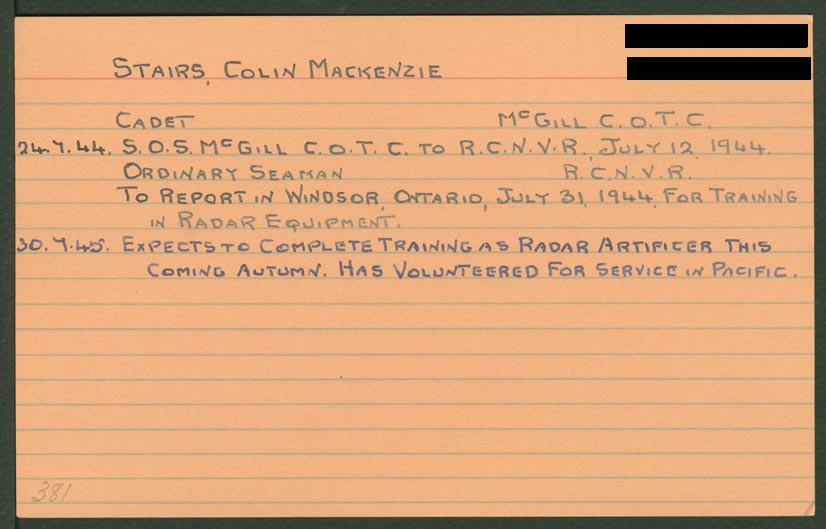 STAIRS, COLIN MACKENZIE
CADET McGILL C.O.T.C.
24.7.44. S.O.S. McGILL C.O.T.C. TO R.C.N.V.R., JULY 12, 1944.
ORDINARY SEAMAN R.C.N.V.R.
TO REPORT IN WINDSOR, ONTARIO, JULY 31, 1944, FOR TRAINING
IN RADAR EQUIPMENT.
30.7.45. EXPECTS TO COMPLETE TRAINING AS RADAR ARTIFICER THIS
COMING AUTUMN. HAS VOLUNTEERED FOR SERVICE IN PACIFIC.
381